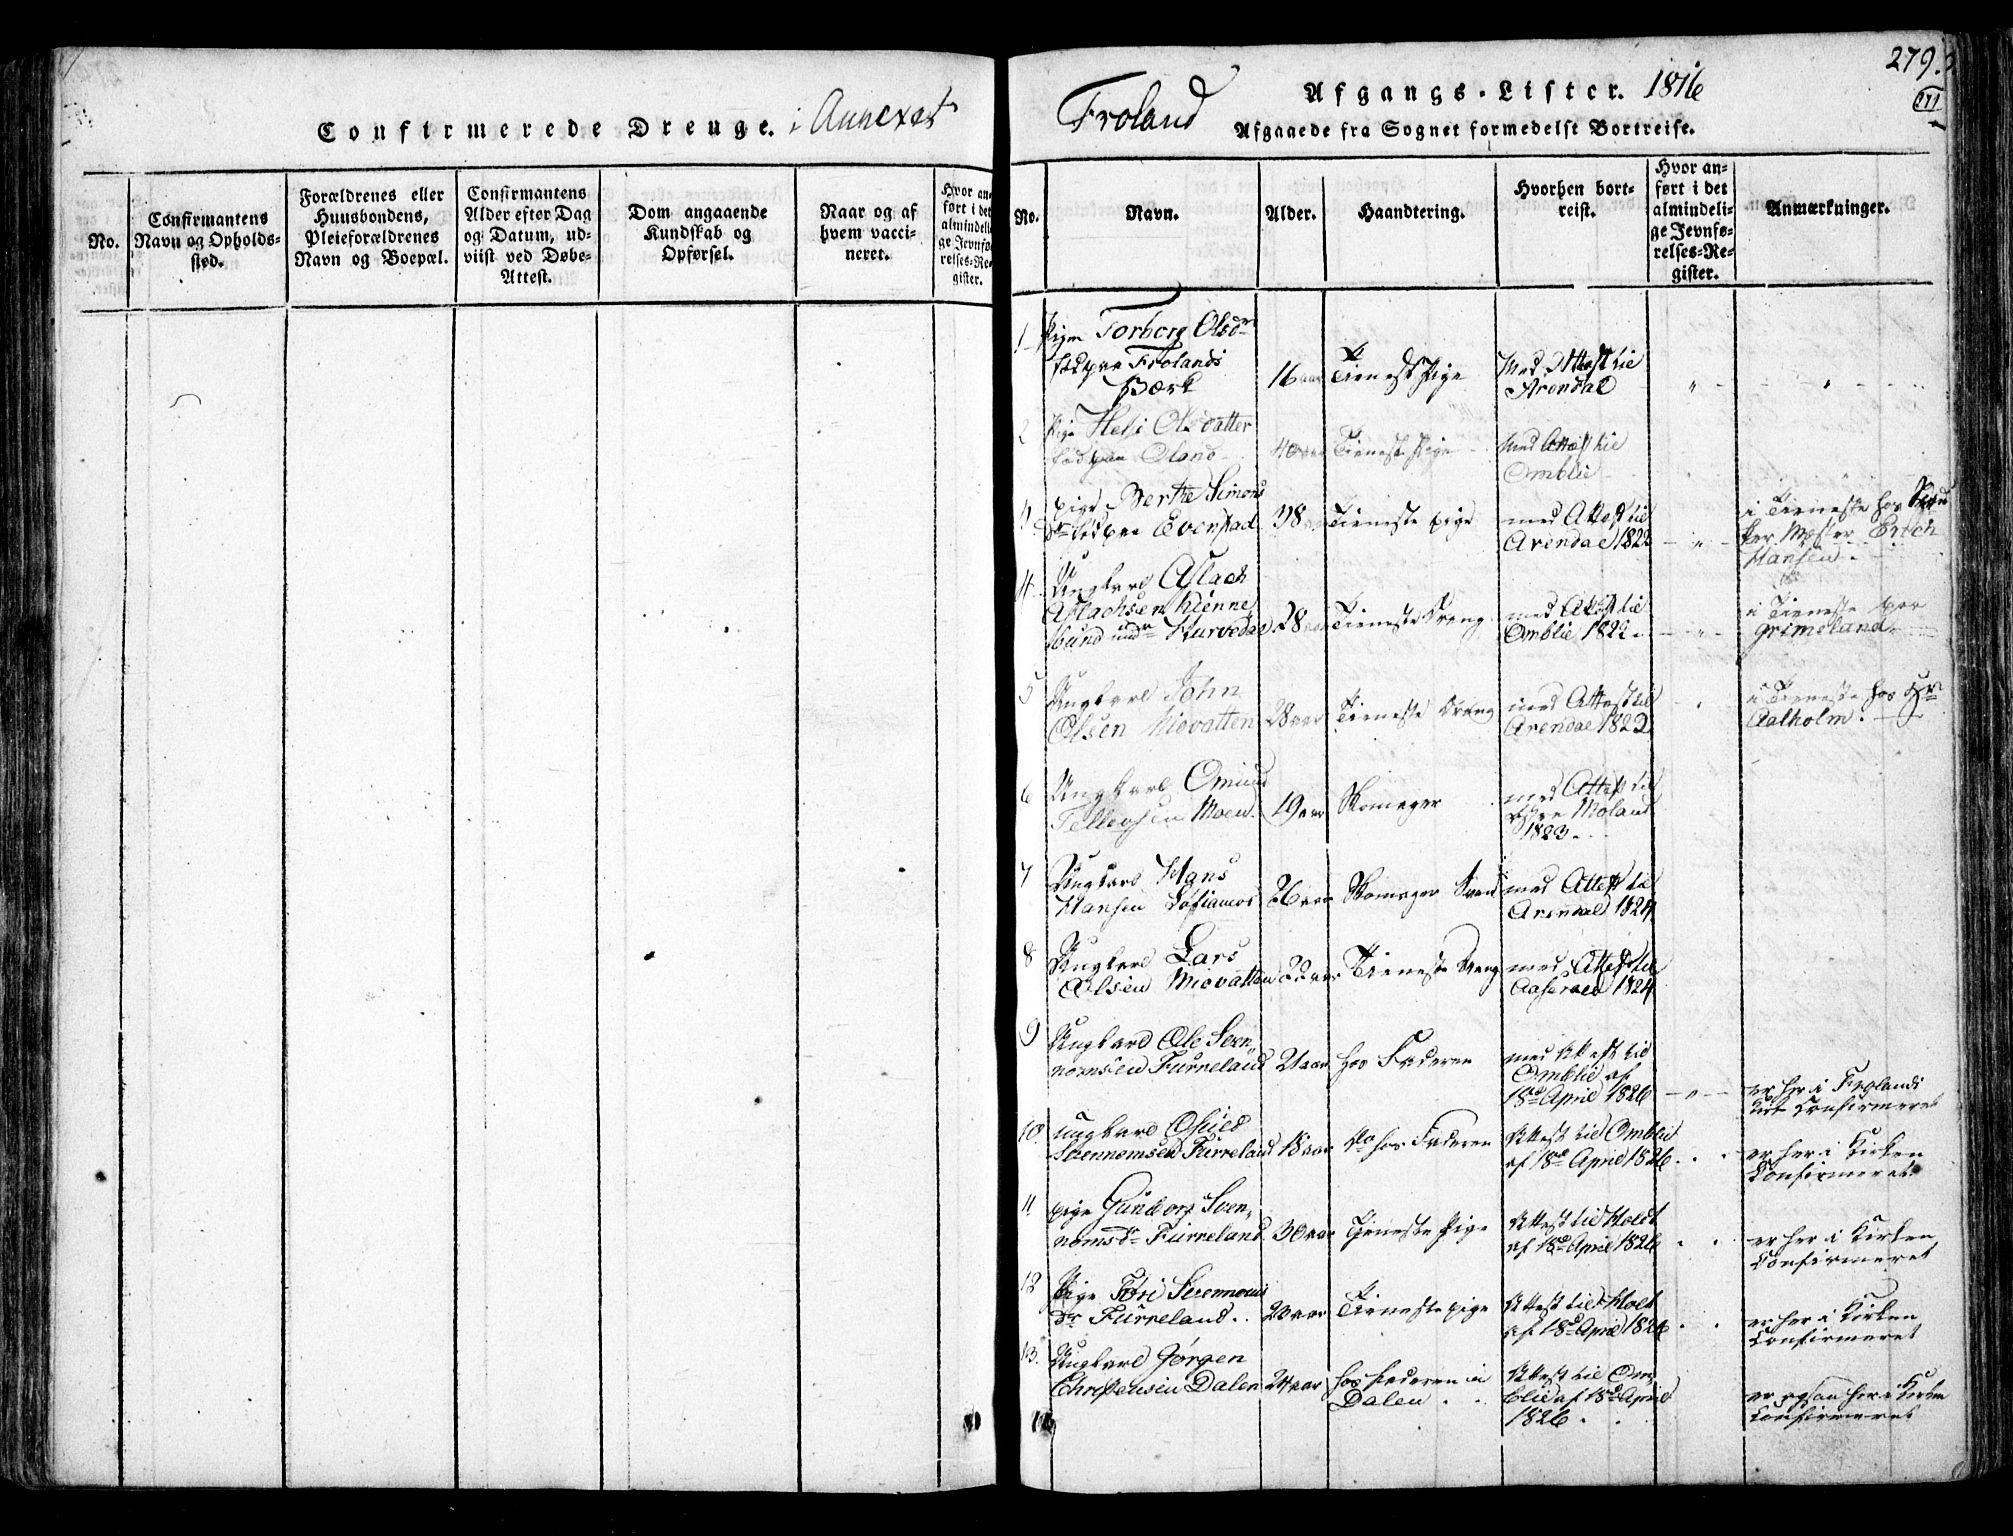 Confirmerede Drenge. i Annexet
No.
Confirmantens
Navn og Opholds-
sted.
Forældrenes eller
Huusbondens,
Pleieforældrenes
Navn og Boepæl.
Confirmantens
Alder efter Dag
og Datum, ud-
viist ved Døbe-
Attest.
Dom angaaende
Kundskab og
Opførsel.
Naar og af
hvem vacci-
neret.
Hvor an-
ført i det
almindeli-
ge Jevnfø-
relses-Re-
gister.
279.
271
Froland
Afgangs-Lister. 1816
Afgaaede fra Sognet formedelst Bortreise.
No.
Navn.
Alder.
Haandtering.
Hvorhen bort-
reist.
Hvor an-
ført i det
almindeli-
ge Jevnfø-
relses-Re-
gister.
Anmærkninger.
1 Pigen Torborg Olsdr
fød paa Frolands
Værk
16 aar
Tieneste Pige
Med Attest til
Arendal
2 Pige Helje Olsdatter
fød paa Oland
40 aar
Tieneste Pige
Med Attest til
Omblie
3 pige Berthe Simons
Dr fød paa Evenstad
38 aar
Tieneste pige
med Attest til
Arendal 1822
i Tieneste hos
Mester Erich
Hansen
4 Ungkarl Aslach
Aslachsen Kienne
undr Hurvedal
28 aar
Tieneste Dreng
med Attest til
Omblie 1822
i Tieneste paa
Grimeland
5 Ungkarl John
Olsen Miovatten
28 aar
Tieneste Dreng
med Attest til
Arendal 1822
i Tieneste hos Hr
Aalholm
6 Ungkarl Omund
Tellevsen Moen
19 aar
Skomager
med Attest til
Moland
1823
7 Ungkarl Hans
Hansen
26 aar
Skomager Svend
med Attest til
Arendal 1824
8 Ungkarl Lars
Olsen Miovatten
22 aar
Tieneste Dreng
med Attest til
1824
9 Ungkarl Ole Sven-
nomsen Furreland
21 aar
hos Faderen
med Attest til
Omblie af
18de April 1826
er her i Frolands
Kirk Confirmeret
10 ungkarl
Svennomsen Furreland
18 aar
do hos Faderen
Attest til Omblie
af 18de April 1826
er her i Kirken
Confirmeret
11 pige Gunborg Sven-
nomsdr Furreland
30 aar
Tieneste Pige
Attest til Holdt
af 18de April 1826
er her i Kirken
Confirmeret
12 Pige Tøri Svennoms
dr Furreland
20 aar
Tieneste pige
Attest til Holt
af 18de April 1826
er her i Kirken
Confirmeret
13. Ungkarl Jørgen
Christensen Dalen
24 aar
hos Faderen i
Dalen
Attest til Om-
blie af 18de April
1826
er ogsaa her i Kirken
Confirmeret